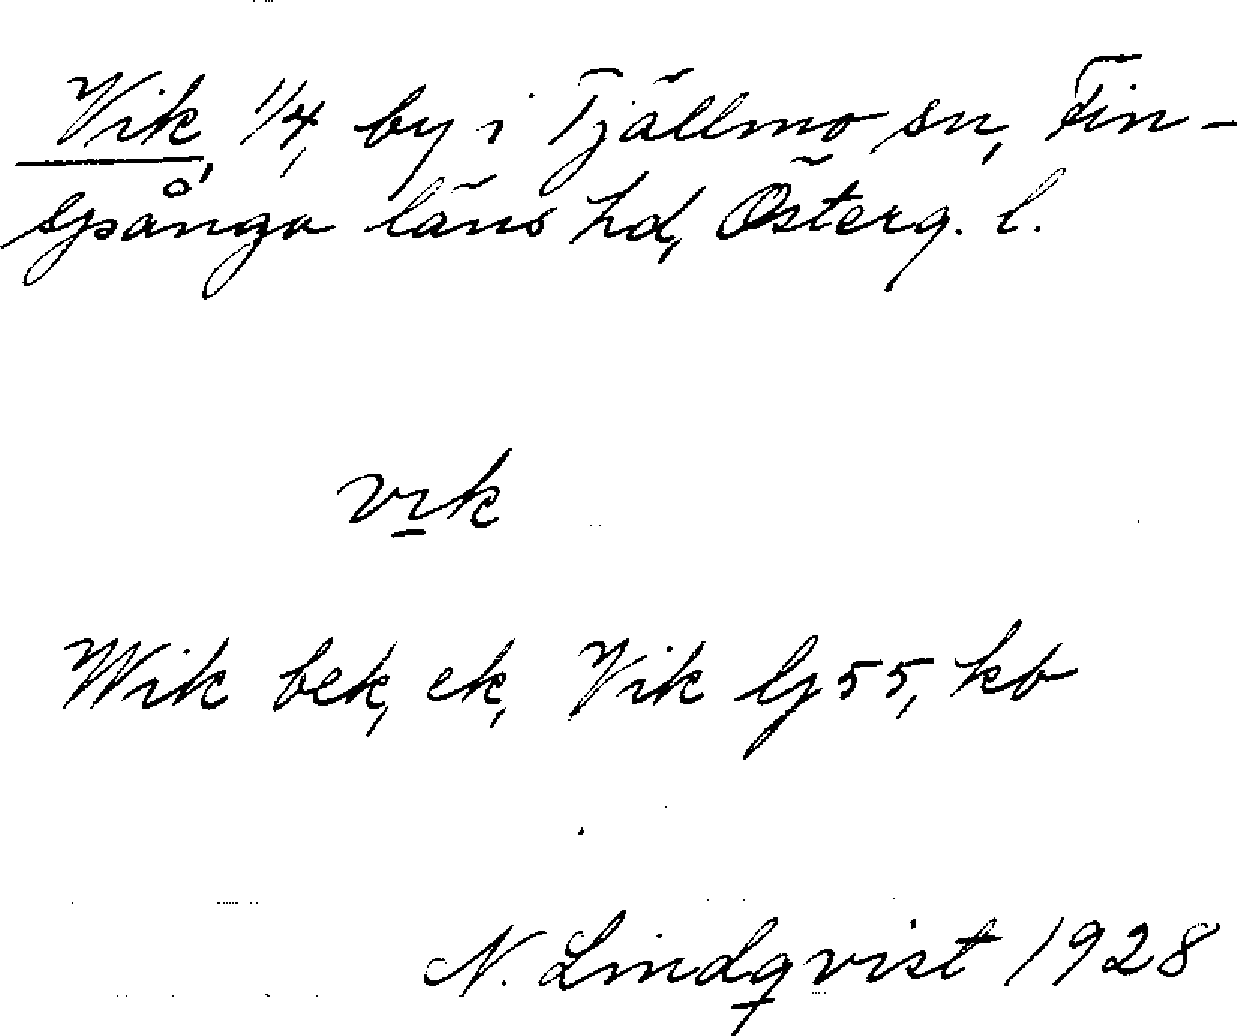 Vik, 1/4, by i Tjällmo sn, Fin-
spånga läns hd, Österg. l.
vık
Wik bek, ek, Vik Gj 55, kb
N. Lindqvist 1928